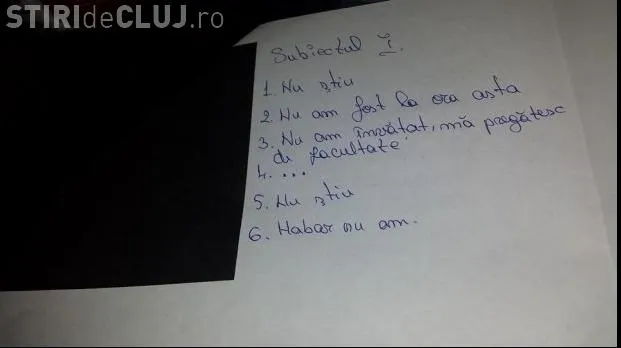 STIRIdeCLUJ.ro
Subiectul I.
1. Nu știu
2. Nu am fost la ora asta
3. Nu am învățat, mă pregătesc
de facultate.
4. ...
5. Nu știu
6. Habar nu am.